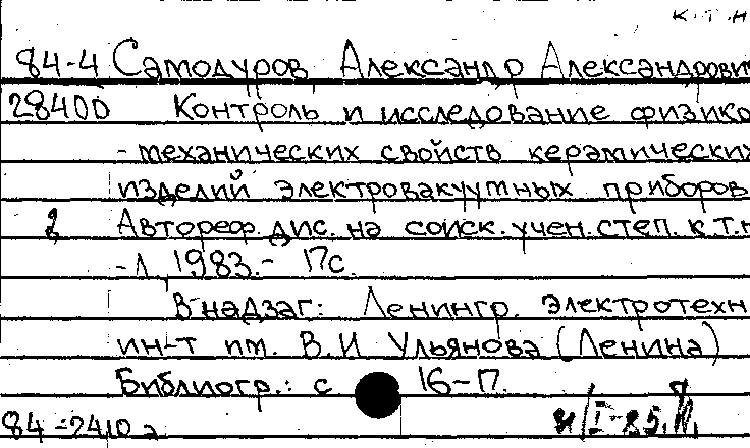 к.т.н
84-4 Самодуров, Александр Александрович
28400 Контроль и исследование физико
-механических свойств керамических
изделий электровакуумных приборов
Автореф. дис. на соиск. учен. степ. к.т.н
-Л., 1983.- 17с.
В надзаг: Ленингр. электротехн
ин-т им. В.И Ульянова (Ленина)
Библиогр.: с 16-17.
84-2410